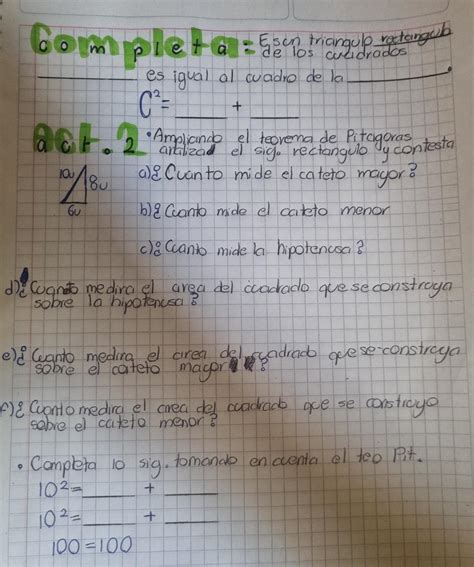 Completa= Es un triangulo rectangulo
de los cuadrados
__________ es igual al cuadro de la __________.
C²= ____ + ____
act. 2 • Ampliando el teorema de Pitagoras
analizad el sig. rectangulo y contesta
10u 8u
6u
a)¿Cuanto mide el cateto mayor?
b)¿Cuanto mide el cateto menor
c)¿Cuanto mide la hipotenusa?
d)¿Cuanto medira el area del cuadrado que se construya
sobre la hipotenusa?
e)¿Cuanto medira el area del cuadrado que se construya
sobre el cateto mayor?
f)¿Cuanto medira el area del cuadrado que se construyo
sobre el cateto menor?
• Completa lo sig. tomando en cuenta el teo Pit.
10²= ____ + ____
10²= ____ + ____
100=100